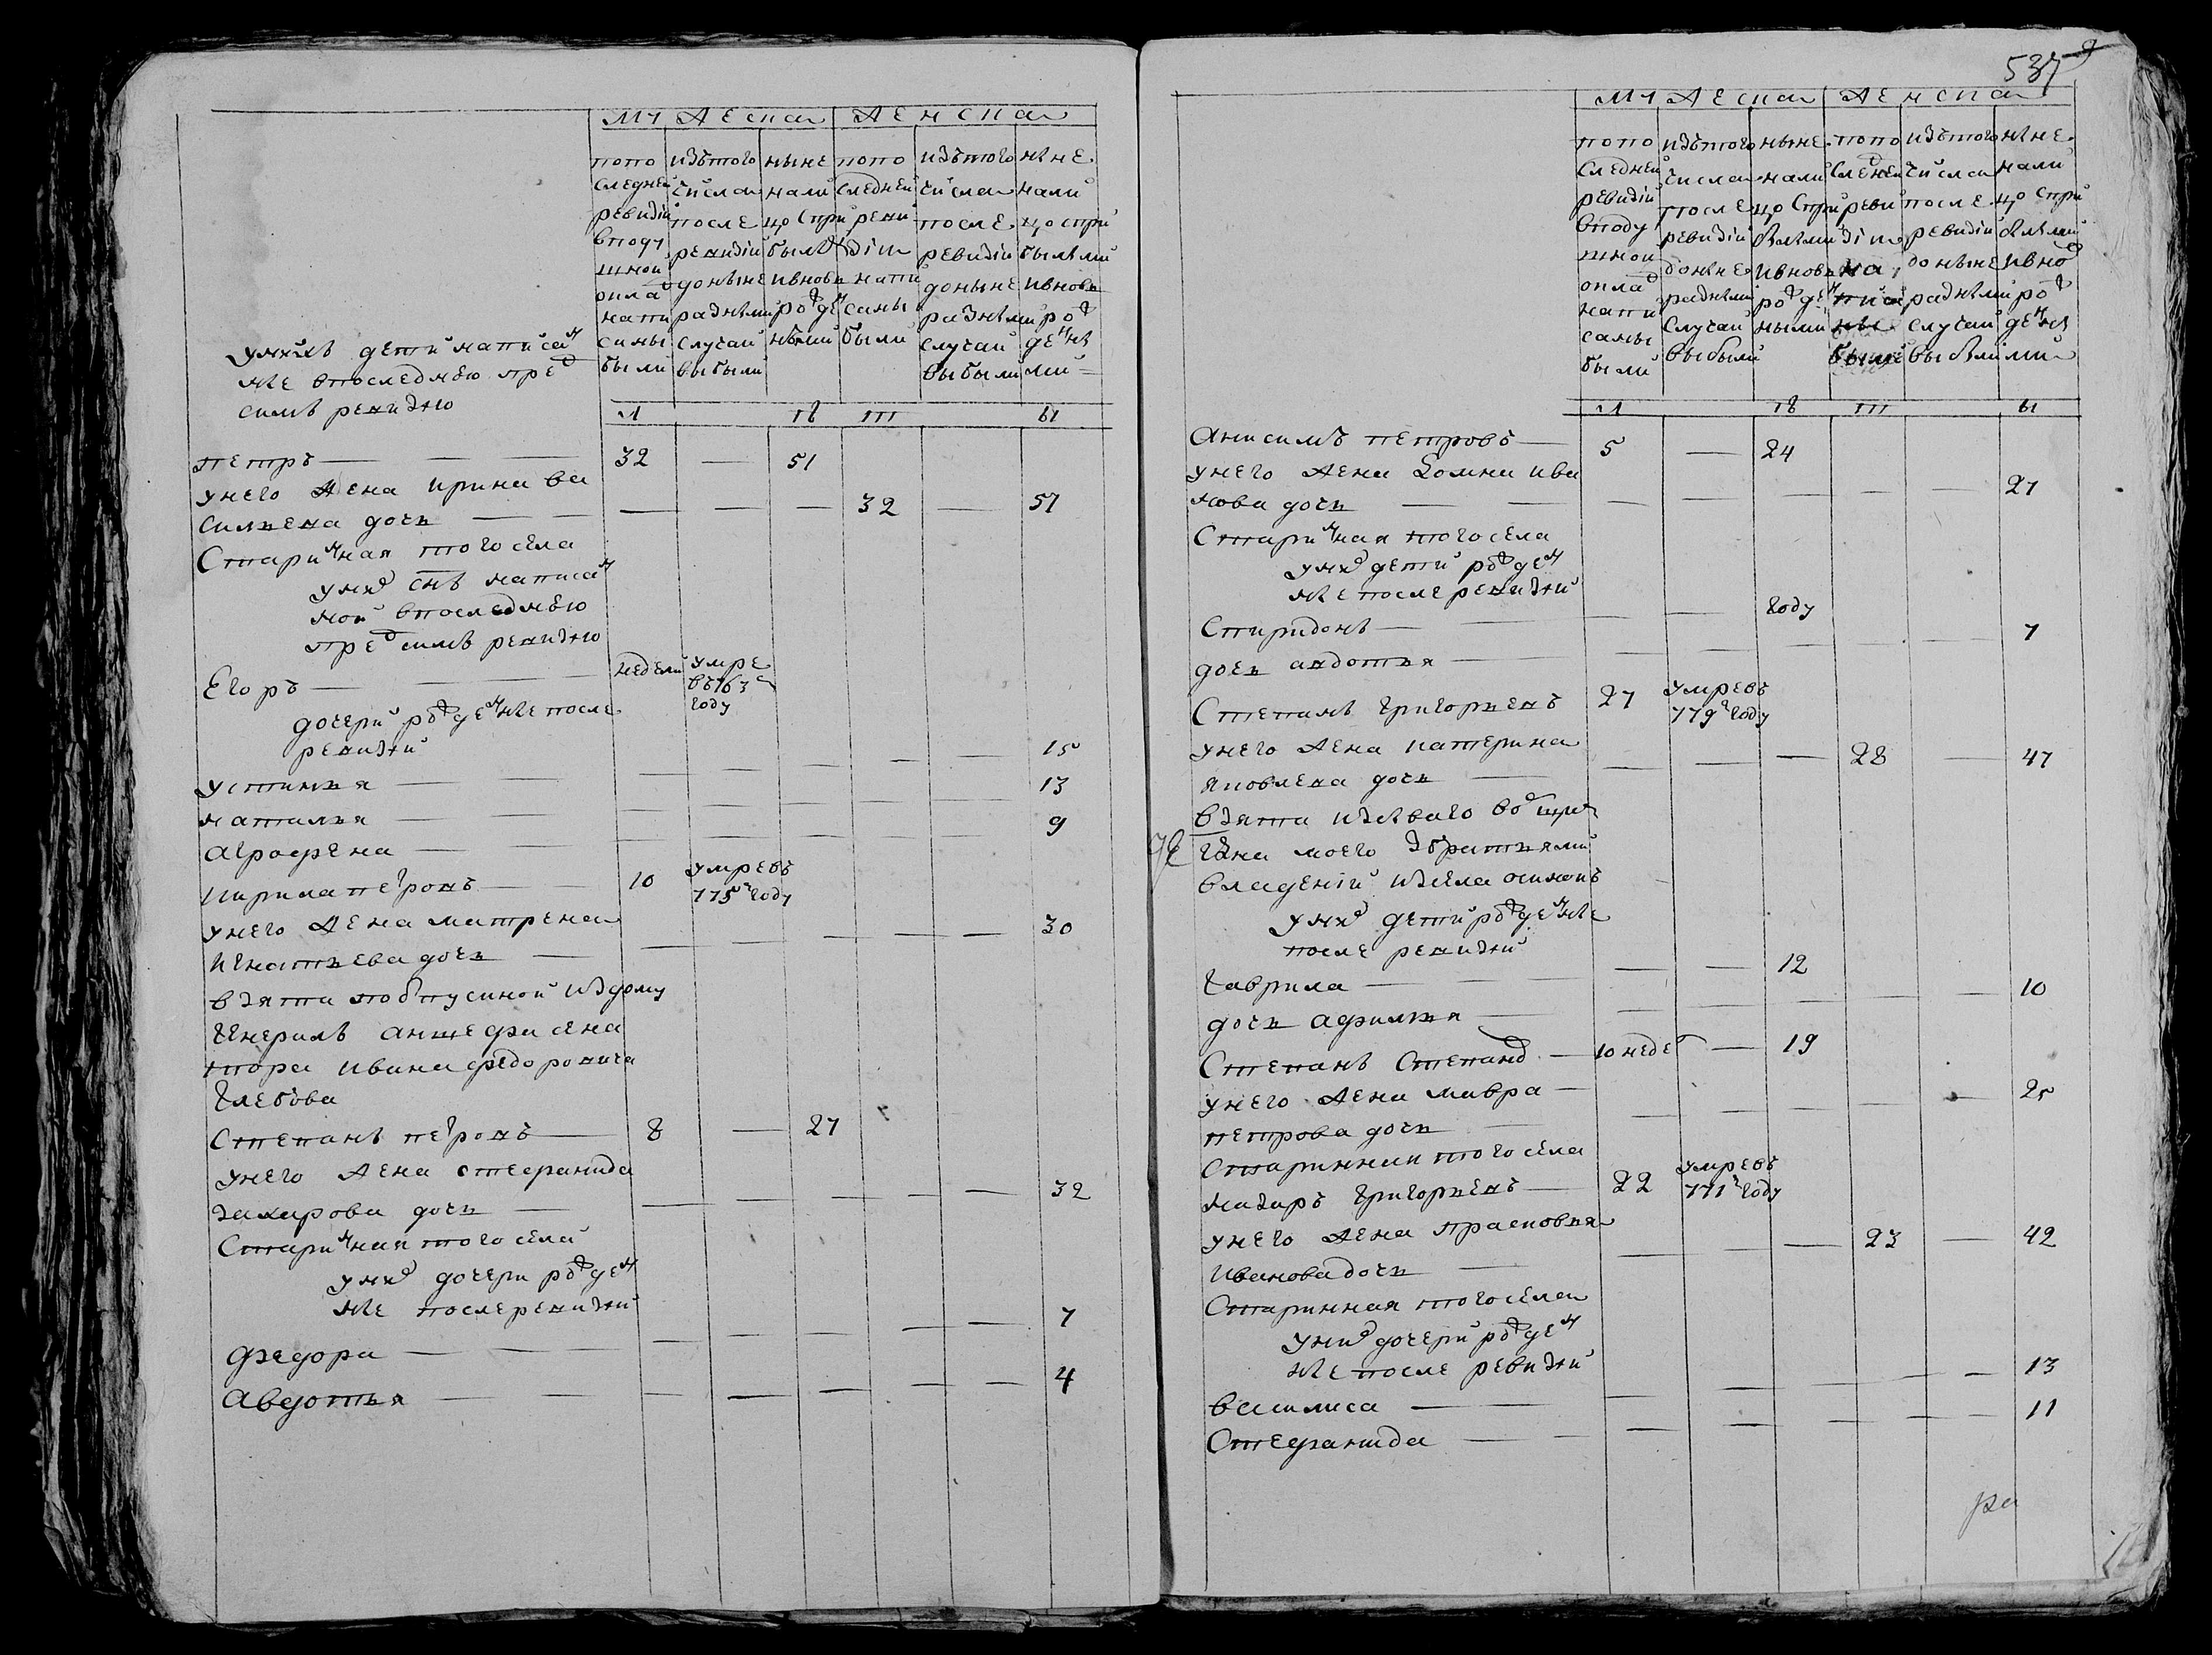 мужеска женска
попо следней ревизіи вподу шной окла д напи саны были
изътого числа после ревизіи доныне разными случаи выбыли
ныне нали цо спри былыми ивновь рожден ными
попо следней реви зіи напи саны были
изътого числа после ревизіи доныне разными случаи выбыли
ныне нали цо спри былыми ивновь рожден ными
унихъ дети написан
ые впоследнюю пред
симъ ревизию
м п ж ы
петръ — 32 — 51
унего жена ирина ва
сильева дочь — — — — 32 — 57
Старинная тогосела
уних снъ написан
ной впоследнюю
пред симъ ревизию
Егоръ — недели умре въ763 году
дочери рожденые после
ревизии
устинья — 15
наталья — 13
агрофена — 9
кирила петровъ — 10 умревъ 775 году
унего жена матрена
игнатьева дочь — 30
взята поотпускной издому
Генералъ аншефа сена
тора ивана федоровича
Глебова
Степанъ петровъ — 8 — 27
унего жена стефанида
захарова дочь — 32
Старинная тогосела
уних дочери рожден
ые послеревизии
федора — 7
авдотья — 4
537
мужеска женска
попо следней ревизіи вподу шной окла д напи саны были
изътого числа после ревизіи доныне разными случаи выбыли
ныне нали цо спри былыми ивновь рожден ными
попо следней реви зіи на пи
изътого числа после ревизіи доныне разными случаи выбыли
ныне нали цо спри былыми ивно рожден ными
м п ж ы
Анисимъ петровъ — 5 — 24
унего жена Домна ива
нова дочь — 27
Старинная тогосела
уних дети рожден
ые послеревизии
Спиридонъ — году
дочь авдотья — 7
Степанъ григорьевъ 27 умревъ 779 году
унего жена катерина
яковлева дочь — 28 — 47
взята изъ
моего збратьями
владений изсела
уних дети рожденые
после ревизии
гаврила — 12
дочь афимья — 10
Степанъ Степанов — 10 неде — 19
унего жена мавра
петрова дочь — 25
Старинная тогосела
назаръ григорьевъ — 22 умревъ 771 году
унего жена прасковья
Ивановадочь — 23 — 42
Старинная тогосела
уних дочери рожден
ые после ревизии
василиса — 13
Стефанида — 11